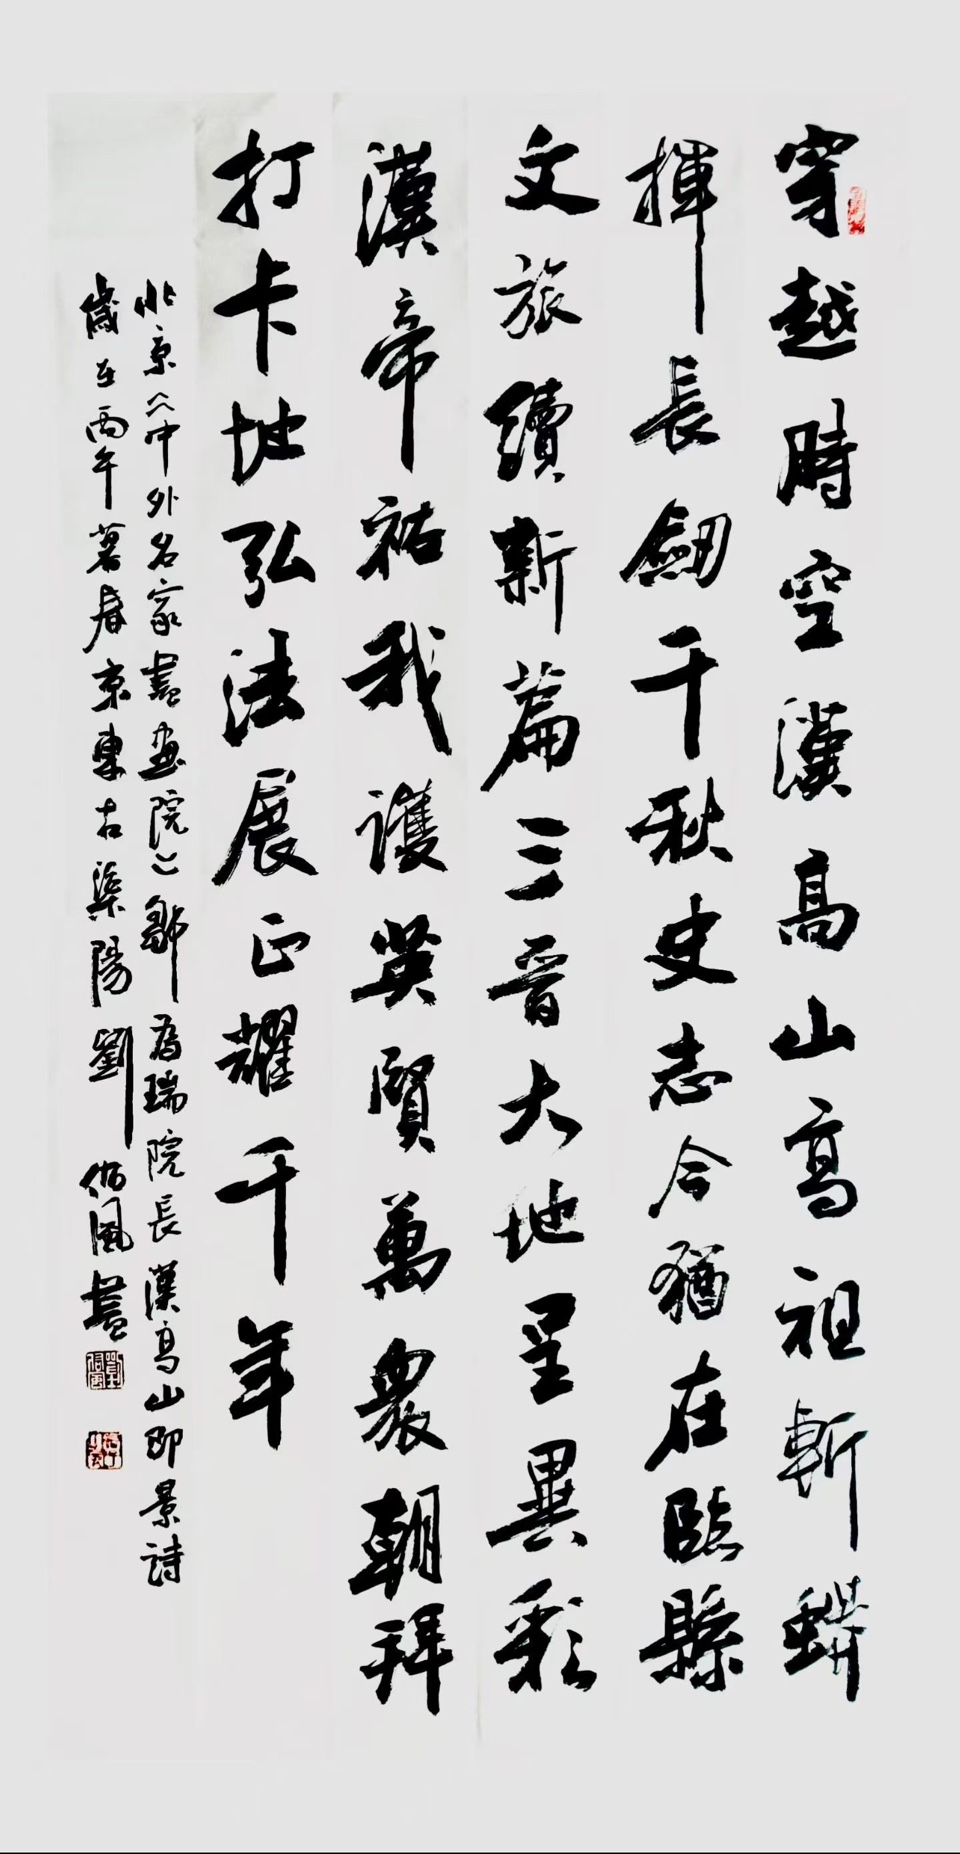 穿越時空漢高山高祖斬蟒
揮長劒千秋史志今猶在臨縣
文旅續新篇三晋大地呈異彩
漢帝祐我護英賢萬衆朝拜
打卡地弘法展正耀千年
北京《中外名家書画院》鄒為瑞院長漢高山即景詩
歲在丙午暮春京東古渠陽劉侗風書